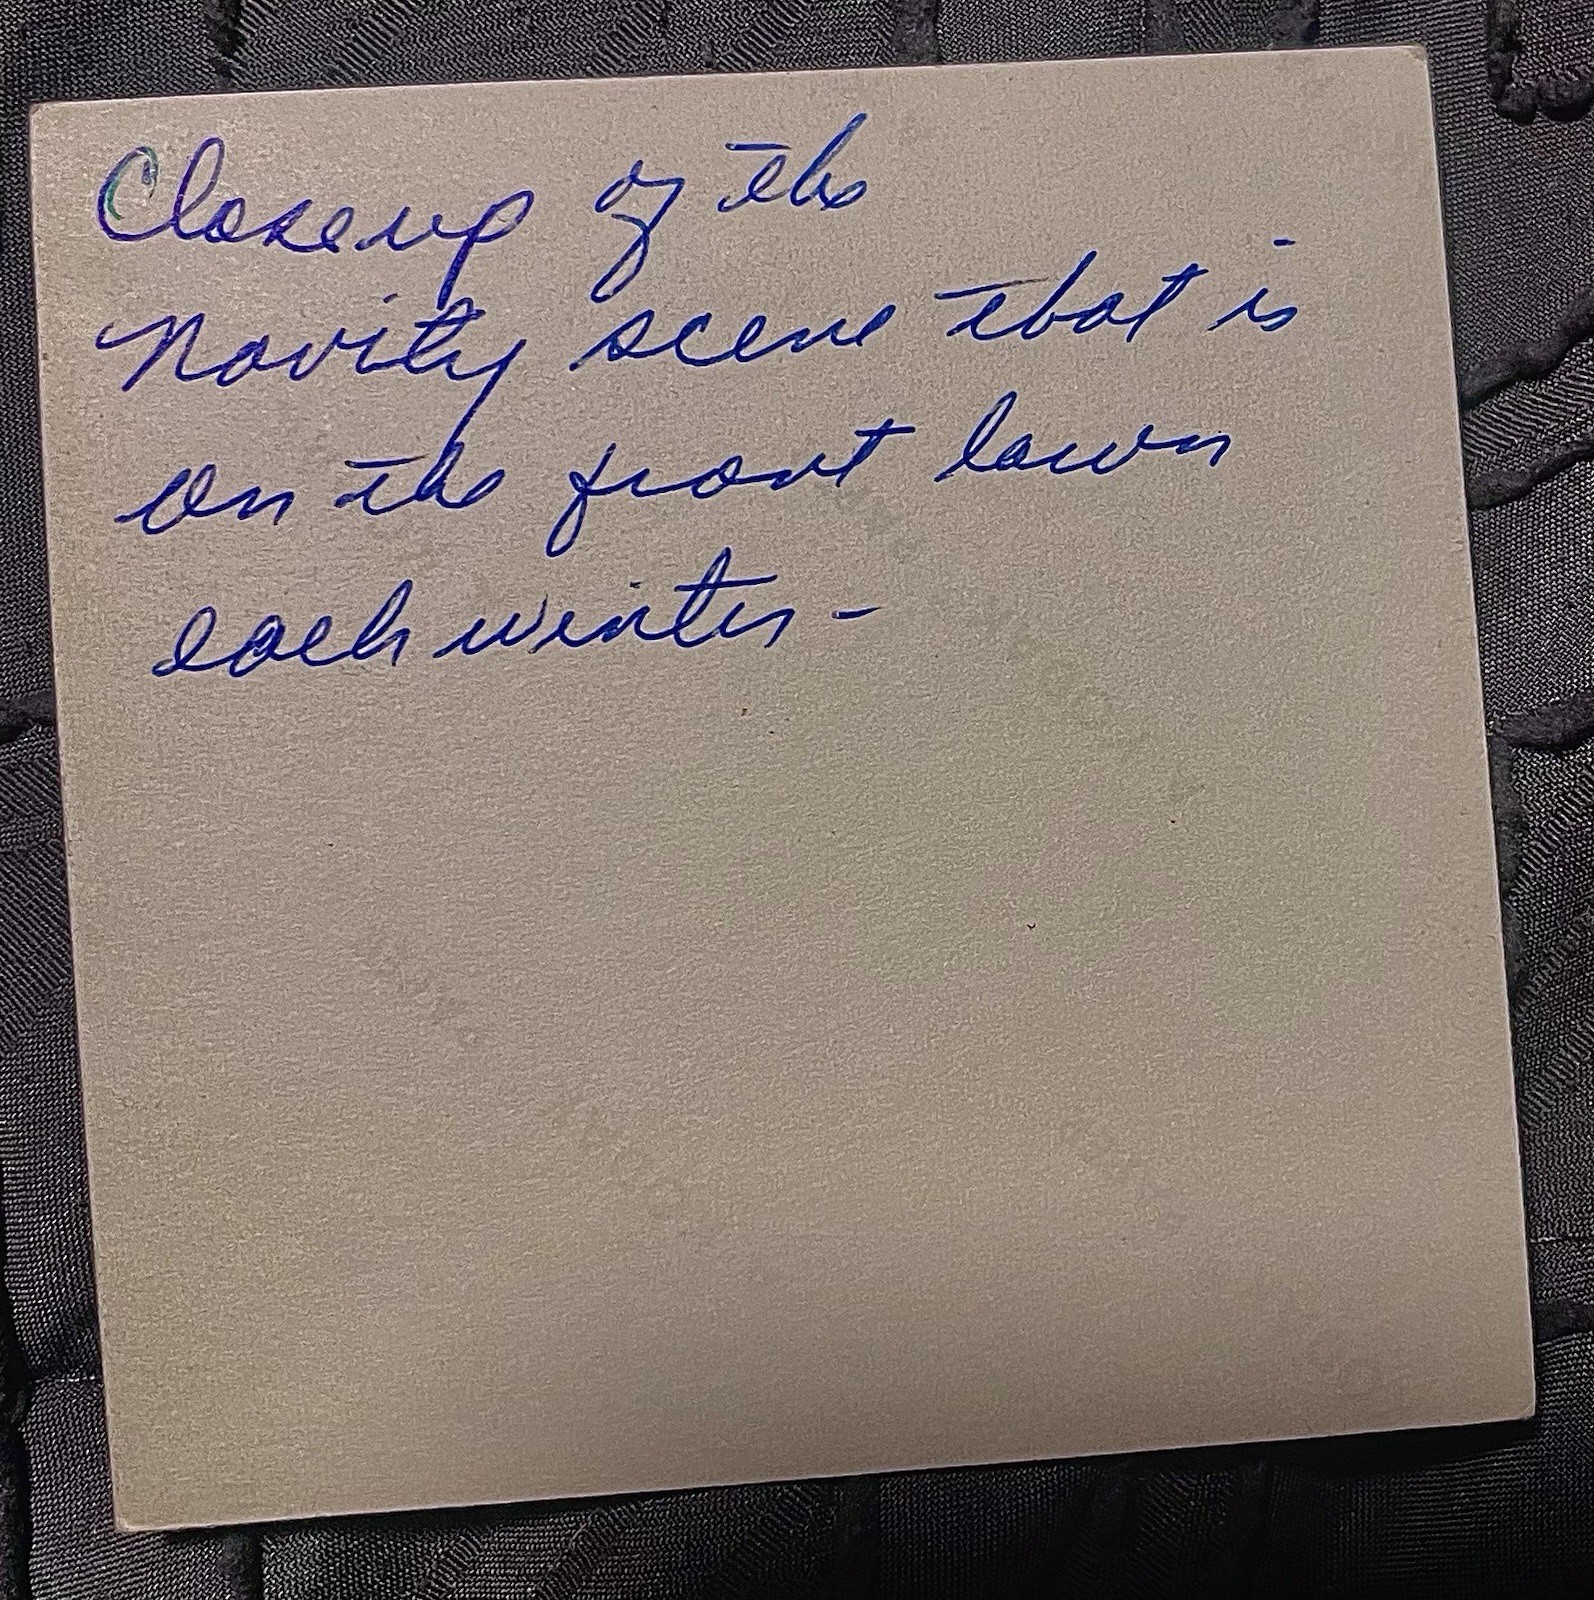 Closeup of the
Navity scene that is
on the front lawn
each winter -